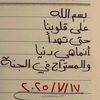 بسم الله
على قلوبنا
حتى تهدأ
انما هي دنيا
والمستراح في الجنة
٢٠٢٥/٧/١٧